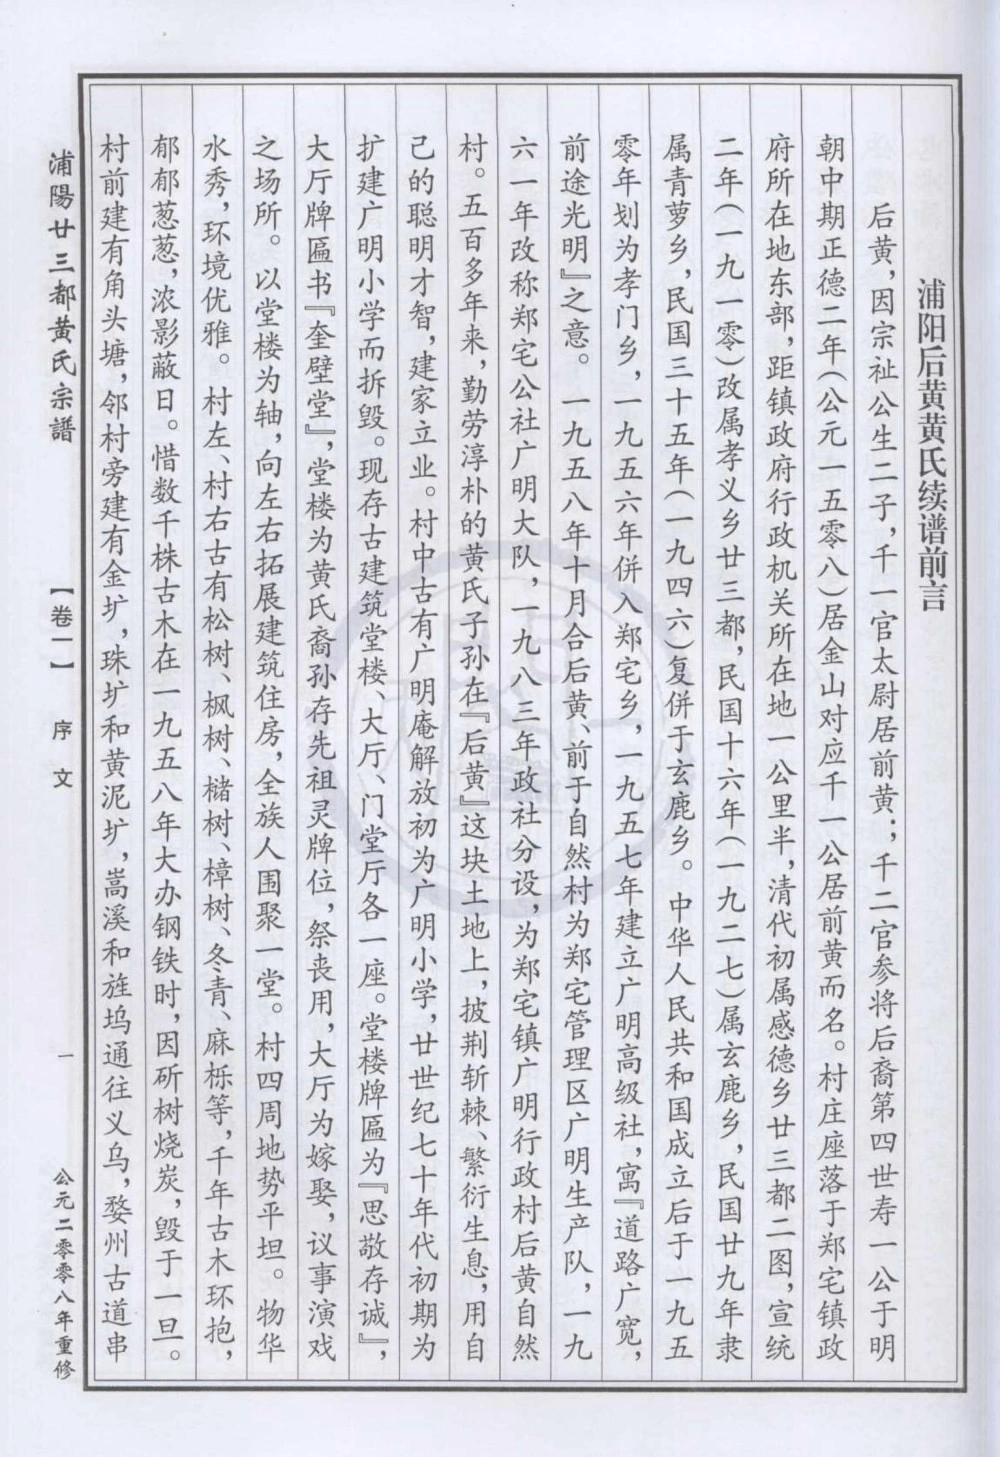 浦阳后黄黄氏续谱前言
后黄，因宗祉公生二子，千一官太尉居前黄；千二官参将后裔第四世寿一公于明
朝中期正德二年（公元一五零八）居金山对应千一公居前黄而名。村庄座落于郑宅镇政
府所在地东部，距镇政府行政机关所在地一公里半，清代初属感德乡廿三都二图，宣统
二年（一九一零）改属孝义乡廿三都，民国十六年（一九二七）属玄鹿乡，民国廿九年隶
属青萝乡，民国三十五年（一九四六）复併于玄鹿乡。中华人民共和国成立后于一九五
零年划为孝门乡，一九五六年併入郑宅乡，一九五七年建立广明高级社，寓『道路广宽，
前途光明』之意。一九五八年十月合后黄、前于自然村为郑宅管理区广明生产队，一九
六一年改称郑宅公社广明大队，一九八三年政社分设，为郑宅镇广明行政村后黄自然
村。五百多年来，勤劳淳朴的黄氏子孙在『后黄』这块土地上，披荆斩棘、繁衍生息，用自
己的聪明才智，建家立业。村中古有广明庵解放初为广明小学，廿世纪七十年代初期为
扩建广明小学而拆毁。现存古建筑堂楼、大厅、门堂厅各一座。堂楼牌匾为『思敬存诚』，
大厅牌匾书『奎壁堂』，堂楼为黄氏裔孙存先祖灵牌位，祭丧用，大厅为嫁娶，议事演戏
之场所。以堂楼为轴，向左右拓展建筑住房，全族人围聚一堂。村四周地势平坦。物华
水秀，环境优雅。村左、村右古有松树、枫树、槠树、樟树、冬青、麻栎等，千年古木环抱，
郁郁葱葱，浓影蔽日。惜数千株古木在一九五八年大办钢铁时，因斫树烧炭，毁于一旦。
村前建有角头塘，邻村旁建有金圹，珠圹和黄泥圹，嵩溪和旌坞通往义乌，婺州古道串
浦陽廿三都黄氏宗譜
【卷一】
序文
一
公元二零零八年重修